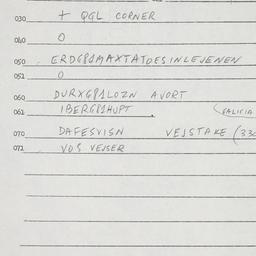 030 + QGL CORNER
040 O
050 ERDGPSMAXTATOESINLEJENEN
051 O
060 DURXGPSLOZN AVORT
061 IBERGPSHUPT (GALICIA
070 DAFESVISN VEJSTAKE (330
072 VOS VEJSER